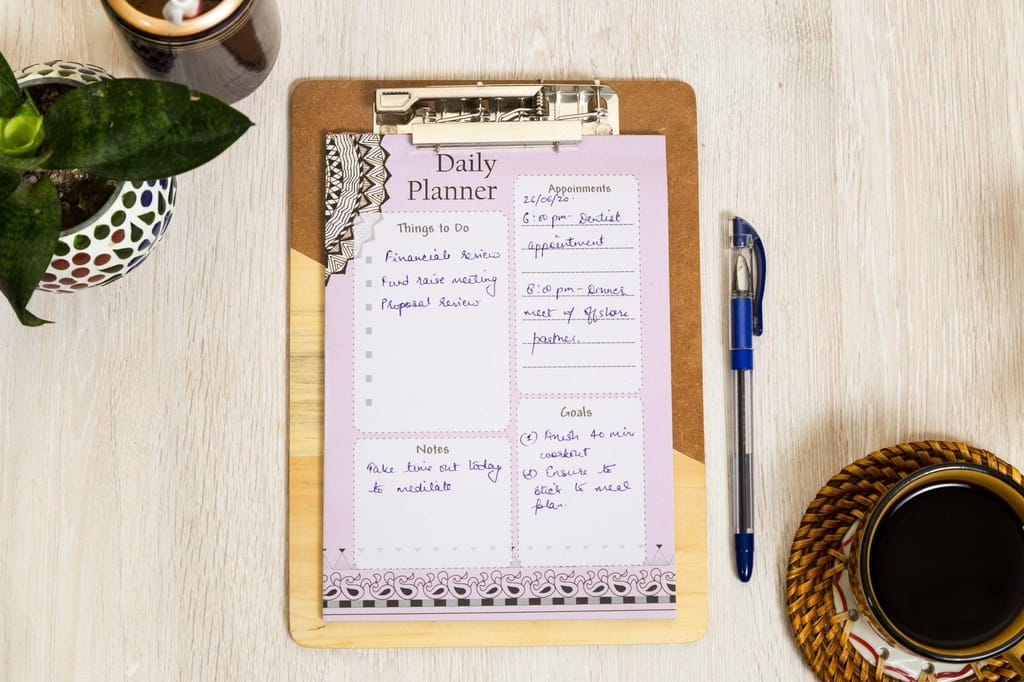 Daily
Planner
Things to Do
Financials review
Fund raise meeting
Proposal review
Appoinments
26/06/20.
6:00 pm - Dentist
appointment
8:00 pm - Dinner
meet w/ offshore
partner.
Notes
Take time out today
to meditate
Goals
(1) Finish 40 min
workout
(2) Ensure to
stick to meal
plan.